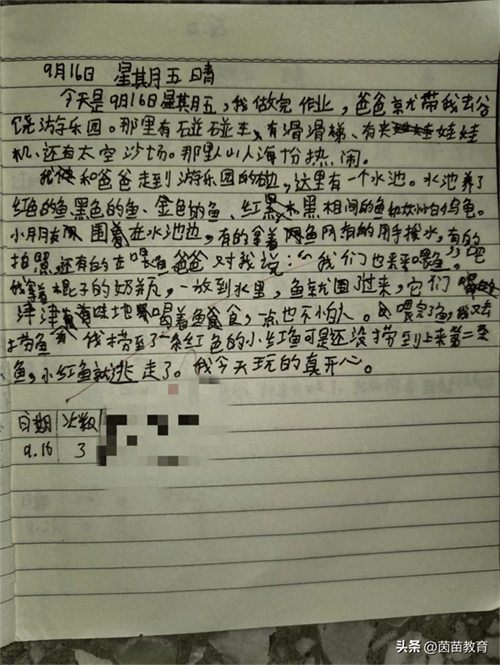 9月16日 星其月五 晴
今天是9月16日星其月五,我做完作业,爸爸京尤带我去谷
饶游乐园。那里有碰碰车、有滑滑梯、有夹娃娃
机、还有太空沙场。那里人山人海份热闹。
我和爸爸走到游乐园的边,这里有一个水池。水池养了
红色的鱼、黑色的鱼、金色的鱼、红黑相间的鱼和
小朋友围着在水池边,有的拿着网鱼网有的用手拨水,有的
拍照,还有的在喂鱼爸爸对我说:“我们也来喂鱼”吧
我拿着棍子的奶瓶,一放到水里,鱼就围过来,它们
津津有味地喝着鱼食,一点也不怕人。喂完了鱼,我又去
捞鱼 我捞到了一条红色的小红鱼可是还没捞到上来第二条
鱼,小红鱼就逃走了。我今天玩的真开心。
日期 次数
9.16 3
头条 @茵苗教育